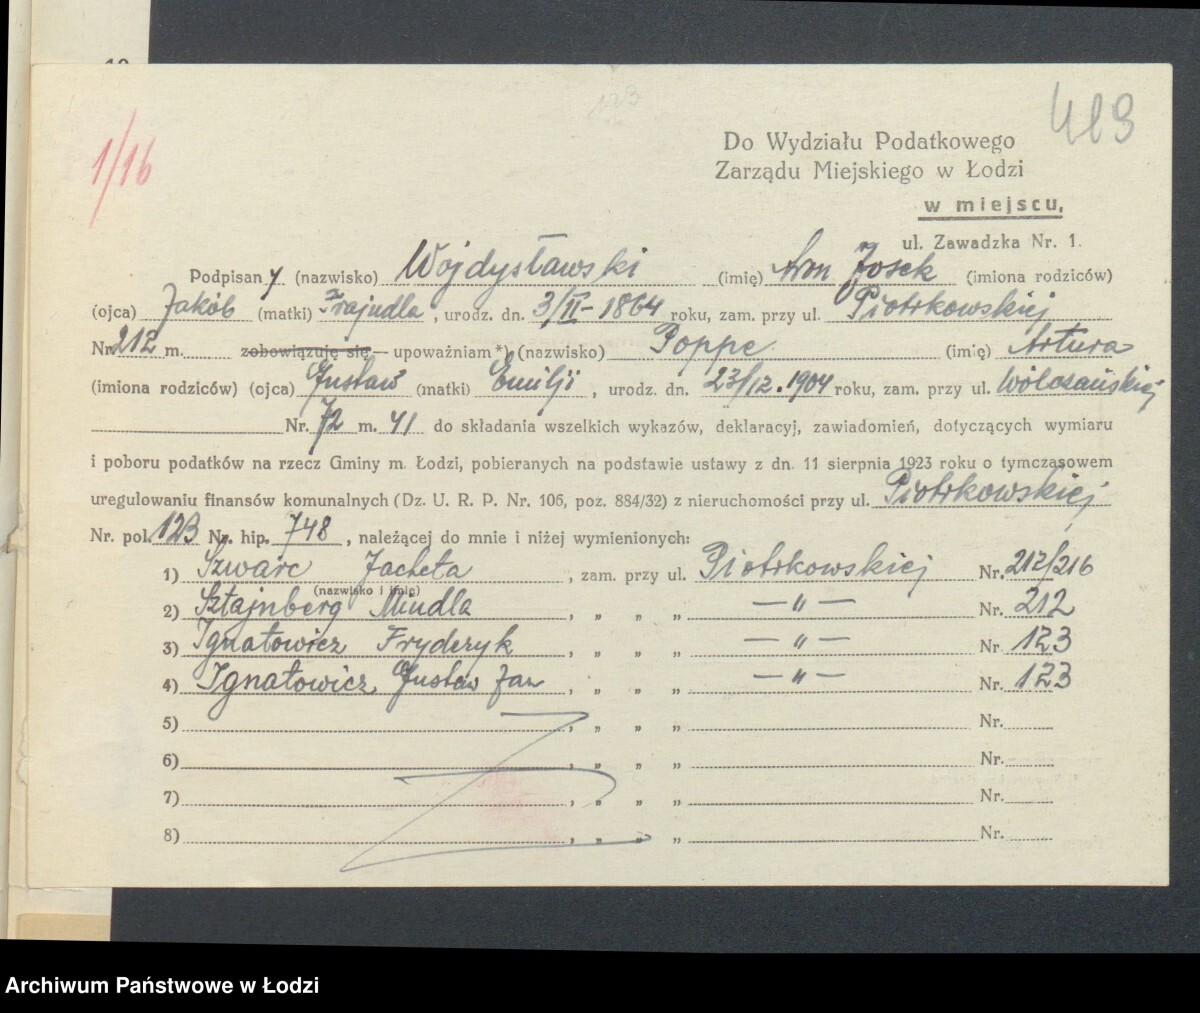 1/16
123
419
Do Wydziału Podatkowego
Zarządu Miejskiego w Łodzi
w miejscu,
ul. Zawadzka Nr. 1.
Podpisany (nazwisko) Wojdysławski (imię) Aron Josek (imiona rodziców)
(ojca) Jakób (matki) Frajudla, urodz. dn. 3/II-1864 roku, zam. przy ul. Piotrkowskiej
Nr. 212 m. zobowiązuję się — upoważniam *) (nazwisko) Poppe (imię) Artura
(imiona rodziców) (ojca) Gustaw (matki) Emilji, urodz. dn. 23/12.1904 roku, zam. przy ul. Wólczańskiej
Nr. 72 m. 41 do składania wszelkich wykazów, deklaracyj, zawiadomień, dotyczących wymiaru
i poboru podatków na rzecz Gminy m. Łodzi, pobieranych na podstawie ustawy z dn. 11 sierpnia 1923 roku o tymczasowem
uregulowaniu finansów komunalnych (Dz. U. R. P. Nr. 106, poz. 884/32) z nieruchomości przy ul. Piotrkowskiej
Nr. pol. 123 Nr. hip. 748, należącej do mnie i niżej wymienionych:
1) Szwarc Jacheta, zam. przy ul. Piotrkowskiej Nr. 212/216
(nazwisko i imię)
2) Sztajnberg Mindla, „ „ „ — „ — Nr. 212
3) Ignatowicz Fryderyk, „ „ „ — „ — Nr. 123
4) Ignatowicz Gustaw Jan, „ „ „ — „ — Nr. 123
5) , „ „ „ Nr.
6) , „ „ „ Nr.
7) , „ „ „ Nr.
8) , „ „ „ Nr.
Archiwum Państwowe w Łodzi